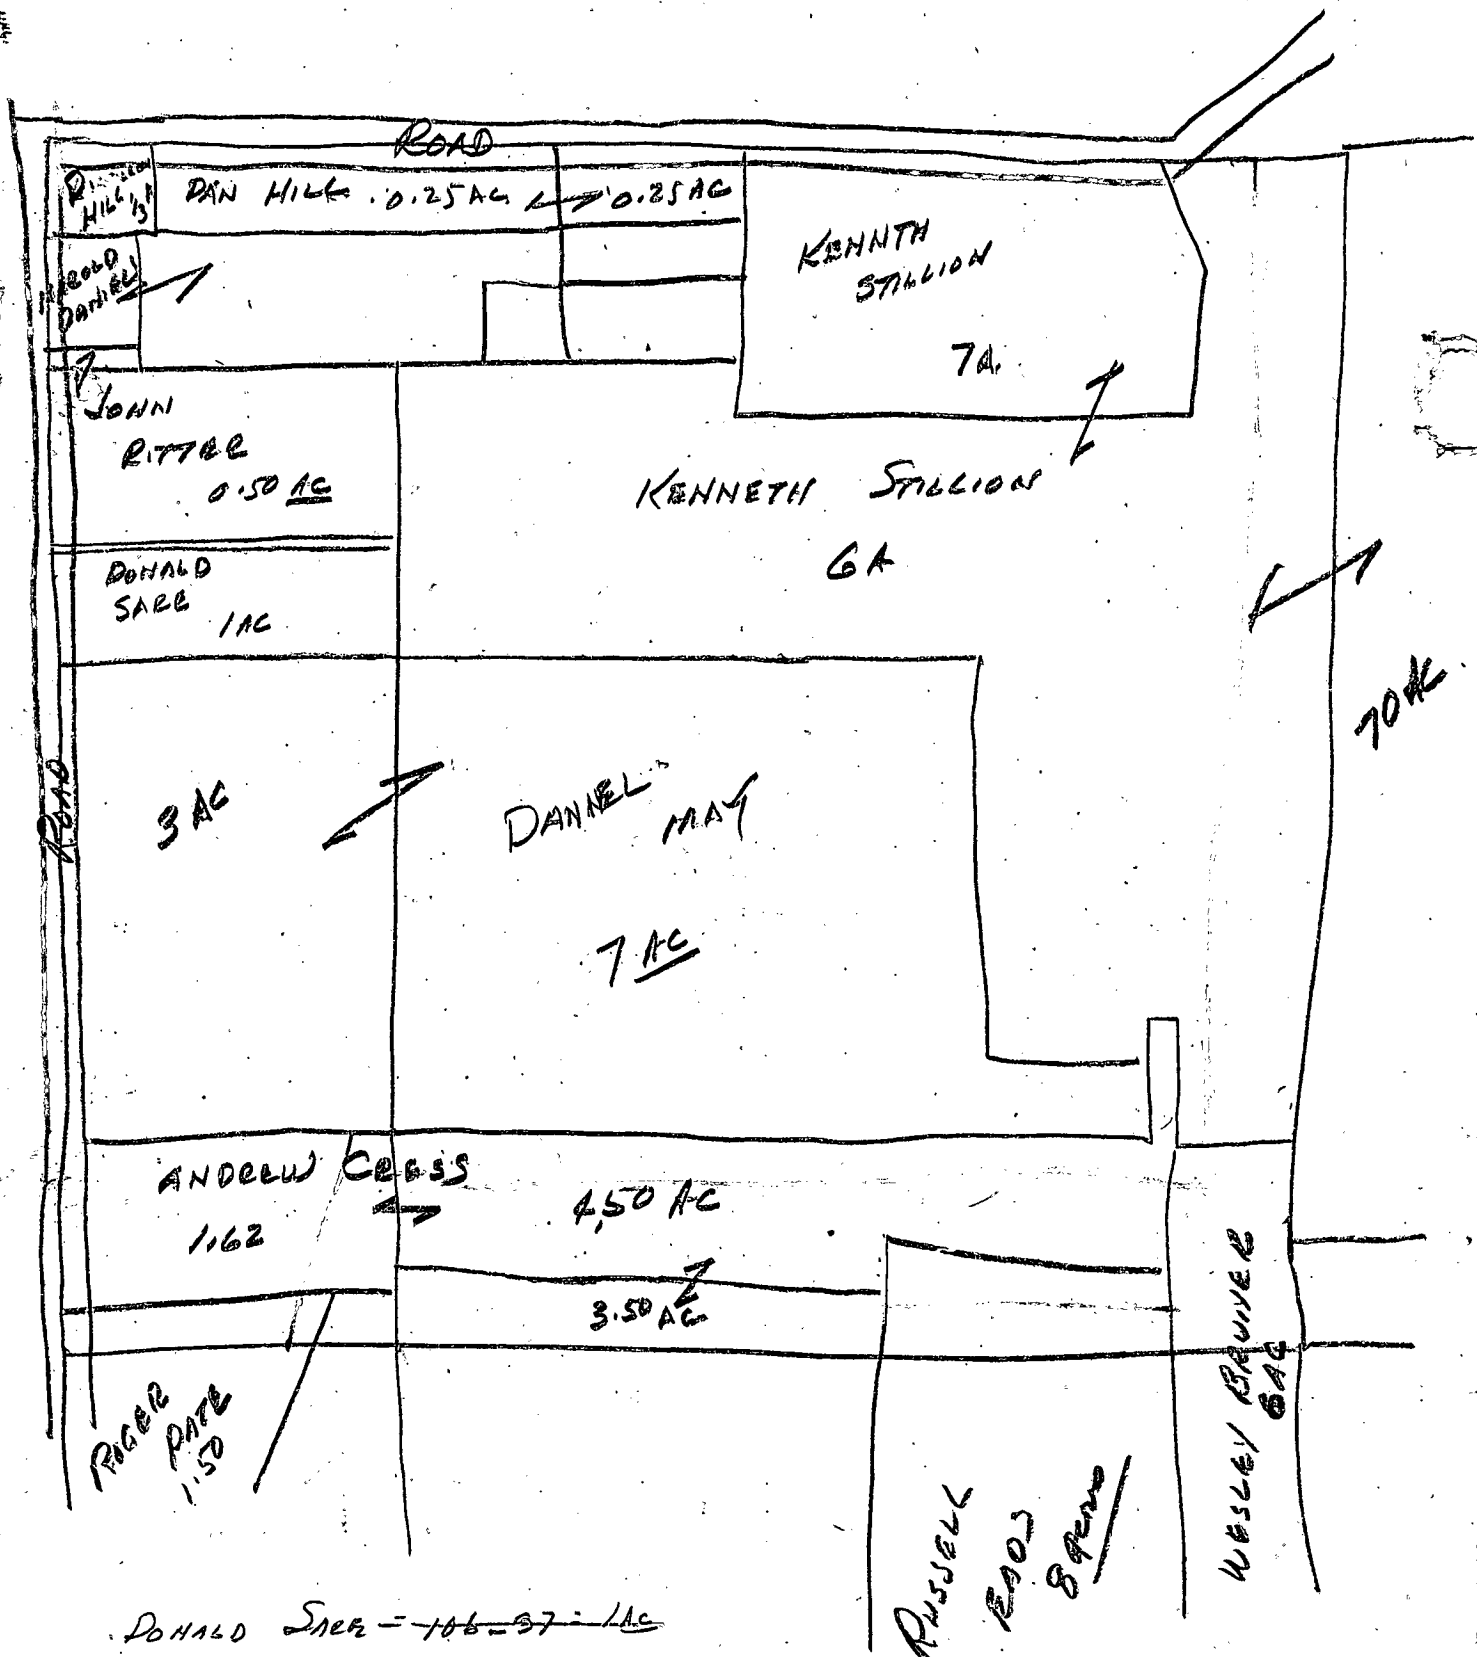 ROAD
HILL 1/3 A
DAN HILL 0.25 AC 0.25 AC
HAROLD
DANIELS
KENNTH
STILLION
7A.
JOHN
RITTER
0.50 AC
KENNETH STILLION
6A
DONALD
SARE
1 AC
70 AC
ROAD
3 AC
DANNEL MAY
7 AC
ANDREW CRESS
1.62
4.50 AC
3.50 AC
WESLEY BRUNER
6 AC
ROGER
PATE
1.50
RUSSELL
EADS
8 acres
DONALD SARE = 106-37 = 1 AC